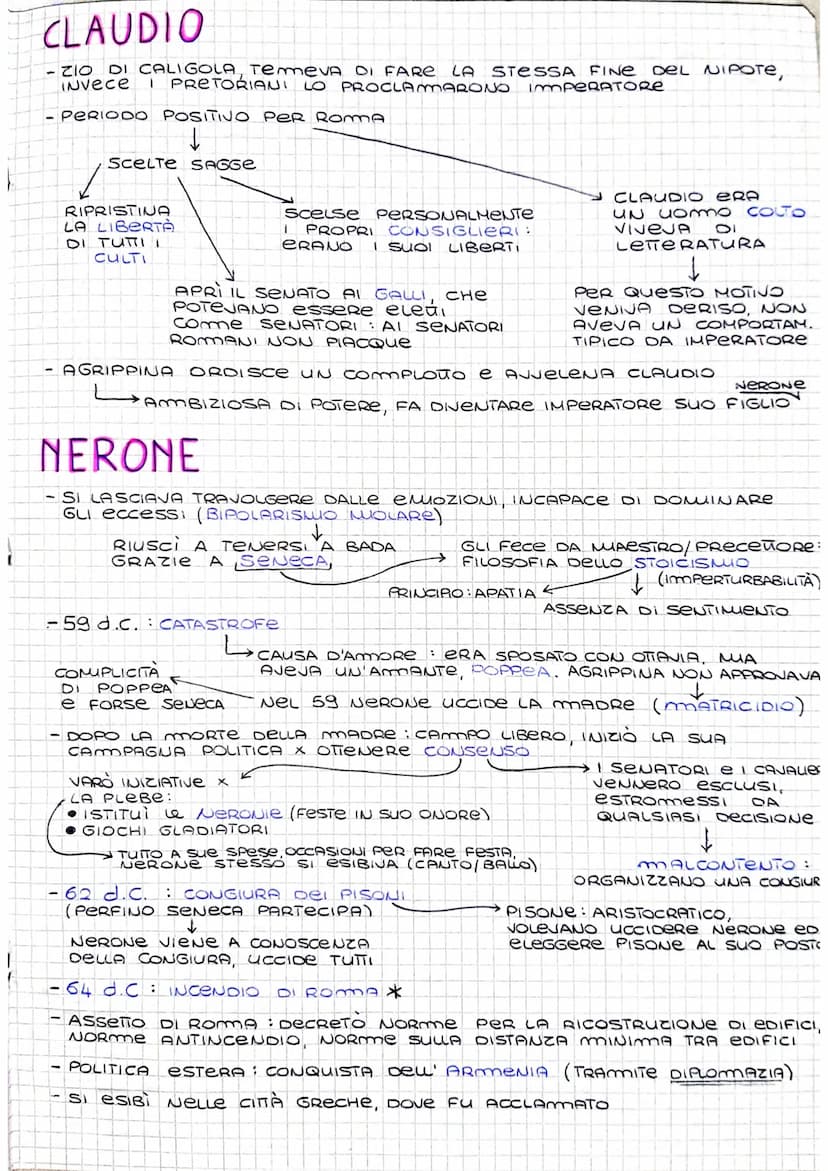 CLAUDIO
- ZIO DI CALIGOLA, TEMEVA DI FARE LA STESSA FINE DEL NIPOTE,
INVECE I PRETORIANI LO PROCLAMARONO IMPERATORE
- PERIODO POSITIVO PER ROMA
SCELTE SAGGE
RIPRISTINA
LA LIBERTÀ
DI TUTTI I
CULTI
SCELSE PERSONALMENTE
I PROPRI CONSIGLIERI:
ERANO I SUOI LIBERTI
CLAUDIO ERA
UN UOMO COLTO
VIVEVA DI
LETTERATURA
APRÌ IL SENATO AI GALLI, CHE
POTEVANO ESSERE ELETTI
COME SENATORI: AI SENATORI
ROMANI NON PIACQUE
PER QUESTO MOTIVO
VENIVA DERISO, NON
AVEVA UN COMPORTAM.
TIPICO DA IMPERATORE
- AGRIPPINA ORDISCE UN COMPLOTTO E AVVELENA CLAUDIO
NERONE
AMBIZIOSA DI POTERE, FA DIVENTARE IMPERATORE SUO FIGLIO
NERONE
- SI LASCIAVA TRAVOLGERE DALLE EMOZIONI, INCAPACE DI DOMINARE
GLI ECCESSI (BIPOLARISMO MUOLARE)
RIUSCÌ A TENERSI A BADA
GRAZIE A SENECA,
GLI FECE DA MAESTRO/PRECETTORE:
FILOSOFIA DELLO STOICISMO
(IMPERTURBABILITÀ)
PRINCIPIO: APATIA
ASSENZA DI SENTIMENTO
- 59 d.C.: CATASTROFE
CAUSA D'AMORE: ERA SPOSATO CON OTTAVIA, MA
AVEVA UN'AMANTE, POPPEA. AGRIPPINA NON APPROVAVA
COMPLICITÀ
DI POPPEA
E FORSE SENECA
NEL 59 NERONE UCCIDE LA MADRE (MATRICIDIO)
- DOPO LA MORTE DELLA MADRE: CAMPO LIBERO, INIZIÒ LA SUA
CAMPAGNA POLITICA x OTTENERE CONSENSO
VARÒ INIZIATIVE x
LA PLEBE:
• ISTITUÌ LE NERONIE (FESTE IN SUO ONORE)
• GIOCHI GLADIATORI
TUTTO A SUE SPESE, OCCASIONI PER FARE FESTA,
NERONE STESSO SI ESIBIVA (CANTO/BALLO)
I SENATORI E I CAVALIER
VENNERO ESCLUSI,
ESTROMESSI DA
QUALSIASI DECISIONE
MALCONTENTO:
ORGANIZZANO UNA CONGIUR
- 62 d.C. : CONGIURA DEI PISONI
(PERFINO SENECA PARTECIPA)
NERONE VIENE A CONOSCENZA
DELLA CONGIURA, UCCIDE TUTTI
PISONE: ARISTOCRATICO,
VOLEVANO UCCIDERE NERONE ED
ELEGGERE PISONE AL SUO POSTO
- 64 d.C: INCENDIO DI ROMA *
- ASSETTO DI ROMA: DECRETÒ NORME PER LA RICOSTRUZIONE DI EDIFICI,
NORME ANTINCENDIO, NORME SULLA DISTANZA MINIMA TRA EDIFICI
- POLITICA ESTERA: CONQUISTA DELL'ARMENIA (TRAMITE DIPLOMAZIA)
- SI ESIBÌ NELLE CITTÀ GRECHE, DOVE FU ACCLAMATO